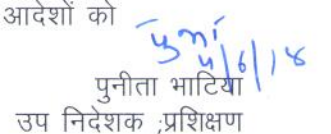 आदेशों को
4/6/18
पुनीता भाटिया
उप निदेशक ;प्रशिक्षण